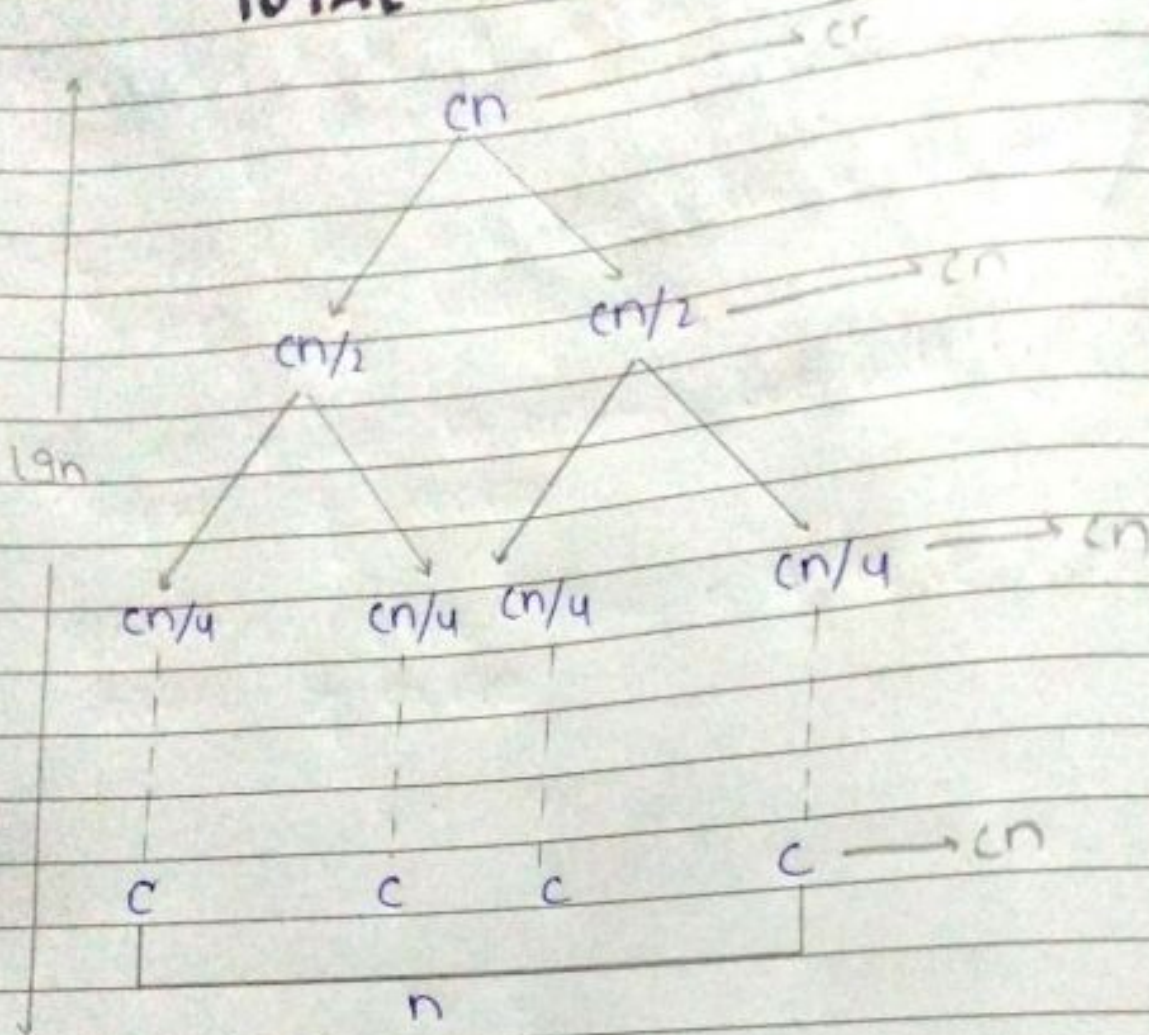 TOTAL
cn → cn
cn/2 cn/2 → cn
lgn
cn/4 cn/4 cn/4 cn/4 → cn
c c c c → cn
n